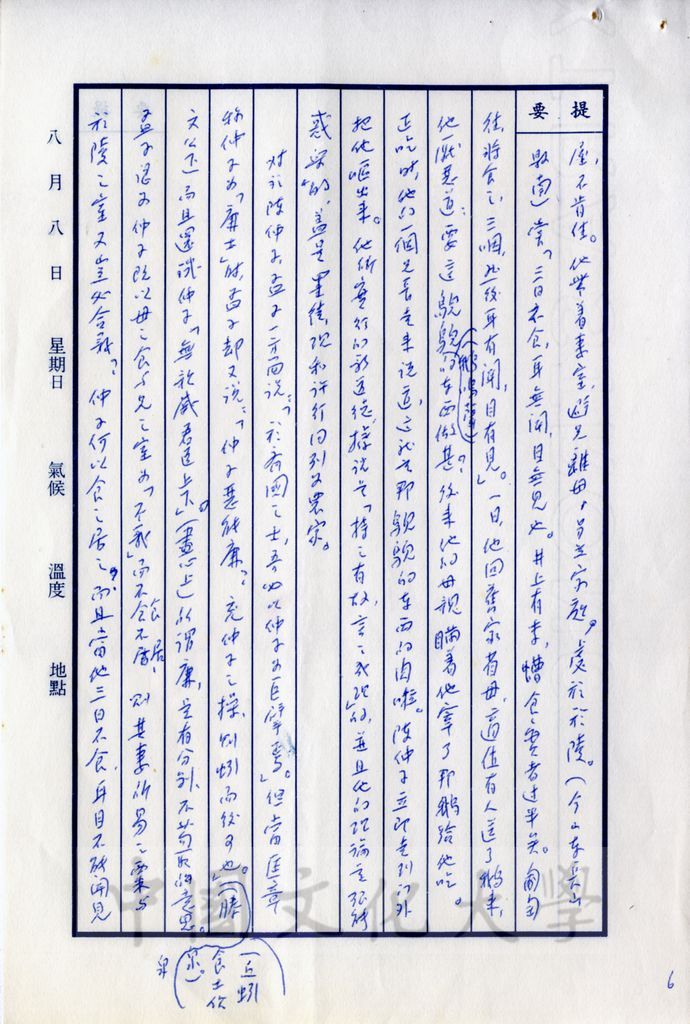 提要
屋,不肯住。他帶着妻室,避兄離母,另立家庭,處於於陵。(今山東長山
縣南)嘗「三日不食,耳無聞,目無見也。井上有李,螬食之實者過半矣。匍匐
往將食之,三咽,然後耳有聞,目有見」。一日,他回舊家省母,適值有人送了鵝來,
他一蹙頞道:要這鶃鶃的東西做甚?後來他的母親瞞着他宰了那鵝給他吃。
(鵝鳴聲)
正吃時,他的一個兄長走來說道,這就是那鶃鶃的東西的肉啦。陳仲子立即走到門外
把他嘔出來。他所實行的新道德,據說是「持之有故,言之成理」的,並且他的理論竟能
惑眾的,蓋是墨徒,現和許行同列為農家。
對於陳仲子,孟子一方面說:「於齊國之士,吾必以仲子為巨擘焉。」但當匡章
稱仲子為「廉士」時,孟子却又說:「仲子惡能廉?充仲子之操,則蚓而後可也」(滕
文公下)而且還譏仲子「無親戚君臣上下」(盡心上)所謂廉,是有分別,不苟取的意思。
孟子認為仲子既以母之食與兄之室為「不義」而不食不居,則其妻所易之粟與
於陵之室又豈必合義?仲子何以食之居之?而且當他三日不食,耳目不能聞見
(丘蚓食土飲泉)。
泉
八月八日 星期日 氣候 溫度 地點
6
中國文化大學